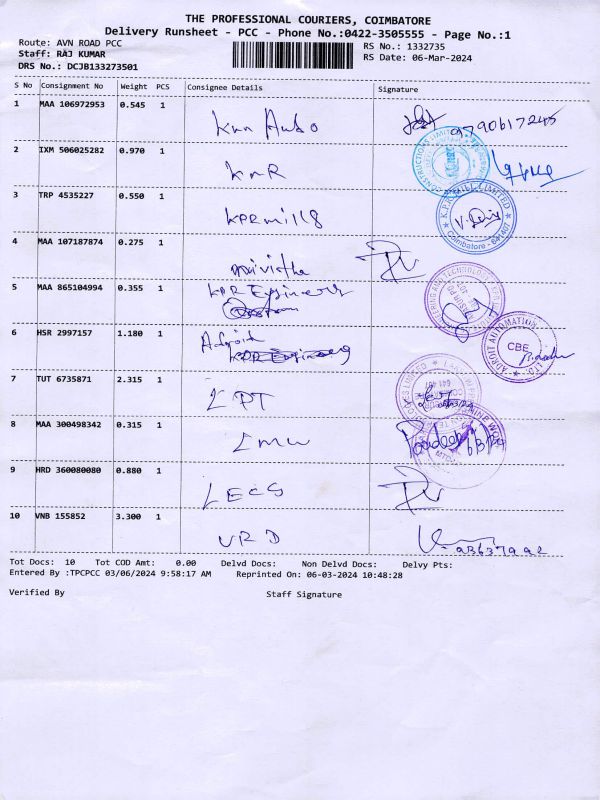 THE PROFESSIONAL COURIERS, COIMBATORE
Delivery Runsheet - PCC - Phone No.:0422-3505555 - Page No.:1
Route: AVN ROAD PCC RS No.: 1332735
Staff: RAJ KUMAR RS Date: 06-Mar-2024
DRS No.: DCJB133273501
S No Consignment No Weight PCS Consignee Details Signature
1 MAA 106972953 0.545 1
2 IXM 506025282 0.970 1 KMR
3 TRP 4535227 0.550 1 KPRmills
4 MAA 107187874 0.275 1
5 MAA 865104994 0.355 1 KPR Engineers
6 HSR 2997157 1.180 1 Adroit
KPR Engineering
7 TUT 6735871 2.315 1 LPT
8 MAA 300498342 0.315 1 LMW
9 HRD 360080080 0.880 1 LECS
10 VNB 155852 3.300 1 URD
K.P.R. MILL LIMITED
Coimbatore - 641407
ADROIT AUTOMATION
CBE
Tot Docs: 10 Tot COD Amt: 0.00 Delvd Docs: Non Delvd Docs: Delvy Pts:
Entered By :TPCPCC 03/06/2024 9:58:17 AM Reprinted On: 06-03-2024 10:48:28
Verified By Staff Signature